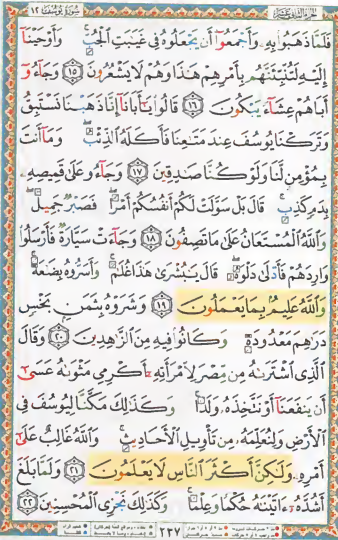 سورة يوسف ١٢
فَلَمَّا ذَهَبُوا۟ بِهِۦ وَأَجْمَعُوٓا۟ أَن يَجْعَلُوهُ فِى غَيَٰبَتِ ٱلْجُبِّ ۚ وَأَوْحَيْنَآ
إِلَيْهِ لَتُنَبِّئَنَّهُم بِأَمْرِهِمْ هَٰذَا وَهُمْ لَا يَشْعُرُونَ ﴿١٥﴾ وَجَآءُوٓ
أَبَاهُمْ عِشَآءً يَبْكُونَ ﴿١٦﴾ قَالُوا۟ يَٰٓأَبَانَآ إِنَّا ذَهَبْنَا نَسْتَبِقُ
وَتَرَكْنَا يُوسُفَ عِندَ مَتَٰعِنَا فَأَكَلَهُ ٱلذِّئْبُ ۖ وَمَآ أَنتَ
بِمُؤْمِنٍ لَّنَا وَلَوْ كُنَّا صَٰدِقِينَ ﴿١٧﴾ وَجَآءُو عَلَىٰ قَمِيصِهِۦ
بِدَمٍ كَذِبٍ ۚ قَالَ بَلْ سَوَّلَتْ لَكُمْ أَنفُسُكُمْ أَمْرًا ۖ فَصَبْرٌ جَمِيلٌ ۖ
وَٱللَّهُ ٱلْمُسْتَعَانُ عَلَىٰ مَا تَصِفُونَ ﴿١٨﴾ وَجَآءَتْ سَيَّارَةٌ فَأَرْسَلُوا۟
وَارِدَهُمْ فَأَدْلَىٰ دَلْوَهُۥ ۖ قَالَ يَٰبُشْرَىٰ هَٰذَا غُلَٰمٌ ۚ وَأَسَرُّوهُ بِضَٰعَةً ۚ
وَٱللَّهُ عَلِيمٌۢ بِمَا يَعْمَلُونَ ﴿١٩﴾ وَشَرَوْهُ بِثَمَنٍۭ بَخْسٍ
دَرَٰهِمَ مَعْدُودَةٍ وَكَانُوا۟ فِيهِ مِنَ ٱلزَّٰهِدِينَ ﴿٢٠﴾ وَقَالَ
ٱلَّذِى ٱشْتَرَىٰهُ مِن مِّصْرَ لِٱمْرَأَتِهِۦٓ أَكْرِمِى مَثْوَىٰهُ عَسَىٰٓ
أَن يَنفَعَنَآ أَوْ نَتَّخِذَهُۥ وَلَدًا ۚ وَكَذَٰلِكَ مَكَّنَّا لِيُوسُفَ فِى
ٱلْأَرْضِ وَلِنُعَلِّمَهُۥ مِن تَأْوِيلِ ٱلْأَحَادِيثِ ۚ وَٱللَّهُ غَالِبٌ عَلَىٰٓ
أَمْرِهِۦ وَلَٰكِنَّ أَكْثَرَ ٱلنَّاسِ لَا يَعْلَمُونَ ﴿٢١﴾ وَلَمَّا بَلَغَ
أَشُدَّهُۥٓ ءَاتَيْنَٰهُ حُكْمًا وَعِلْمًا ۚ وَكَذَٰلِكَ نَجْزِى ٱلْمُحْسِنِينَ ﴿٢٢﴾
٢٣٧